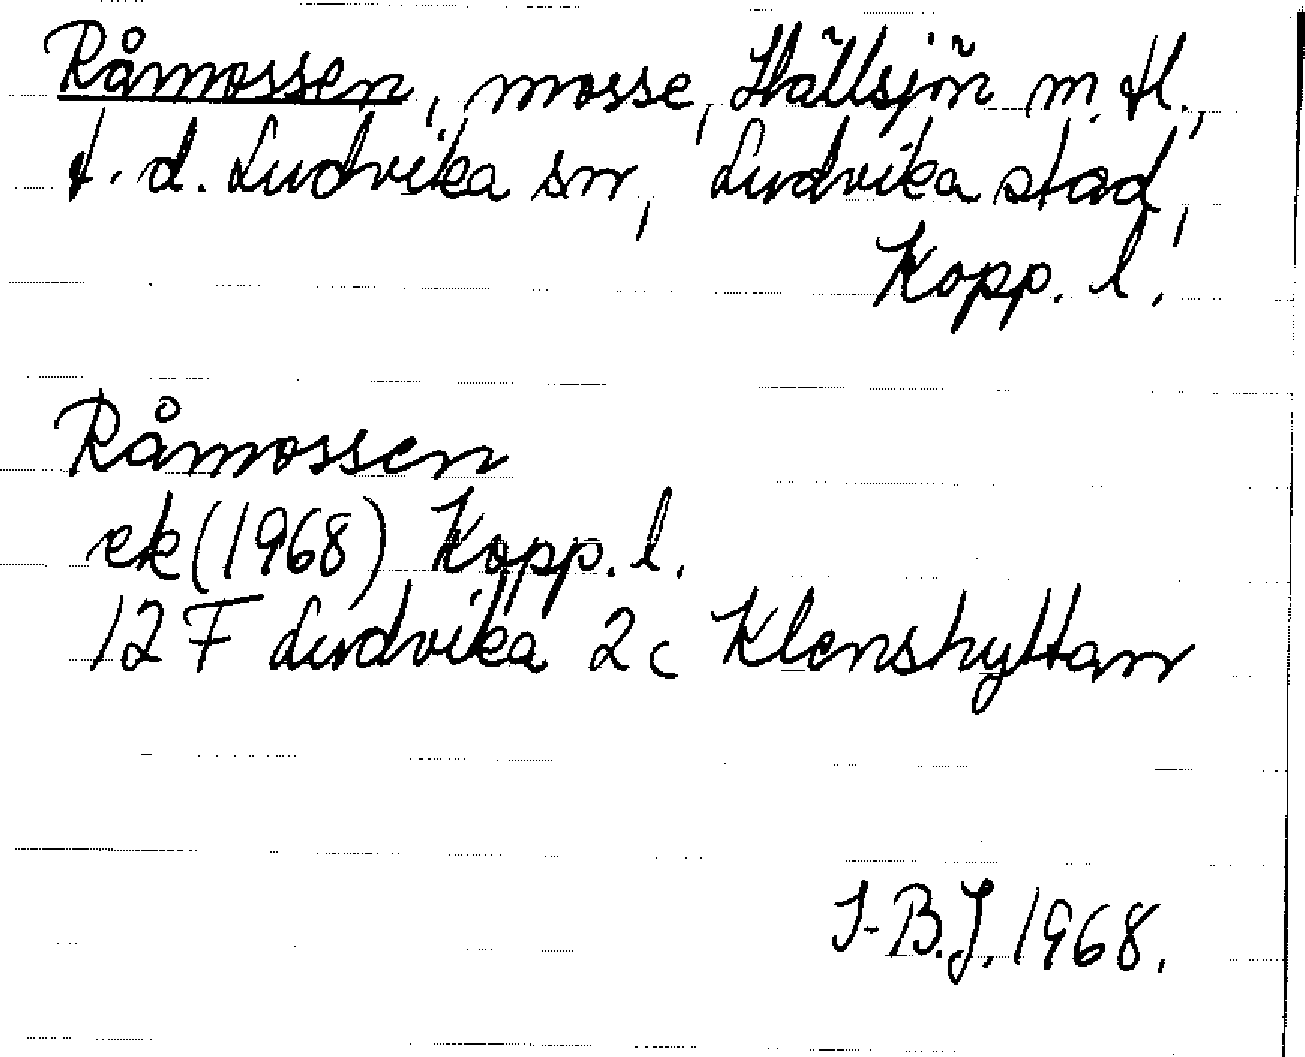 Råmossen, mosse, Hällsjön m. fl.,
f. d. Ludvika sn, Ludvika stad,
Kopp. l.
Råmossen
ek (1968) Kopp. l.
12 F Ludvika 2c Klenshyttan
I-B.J. 1968.